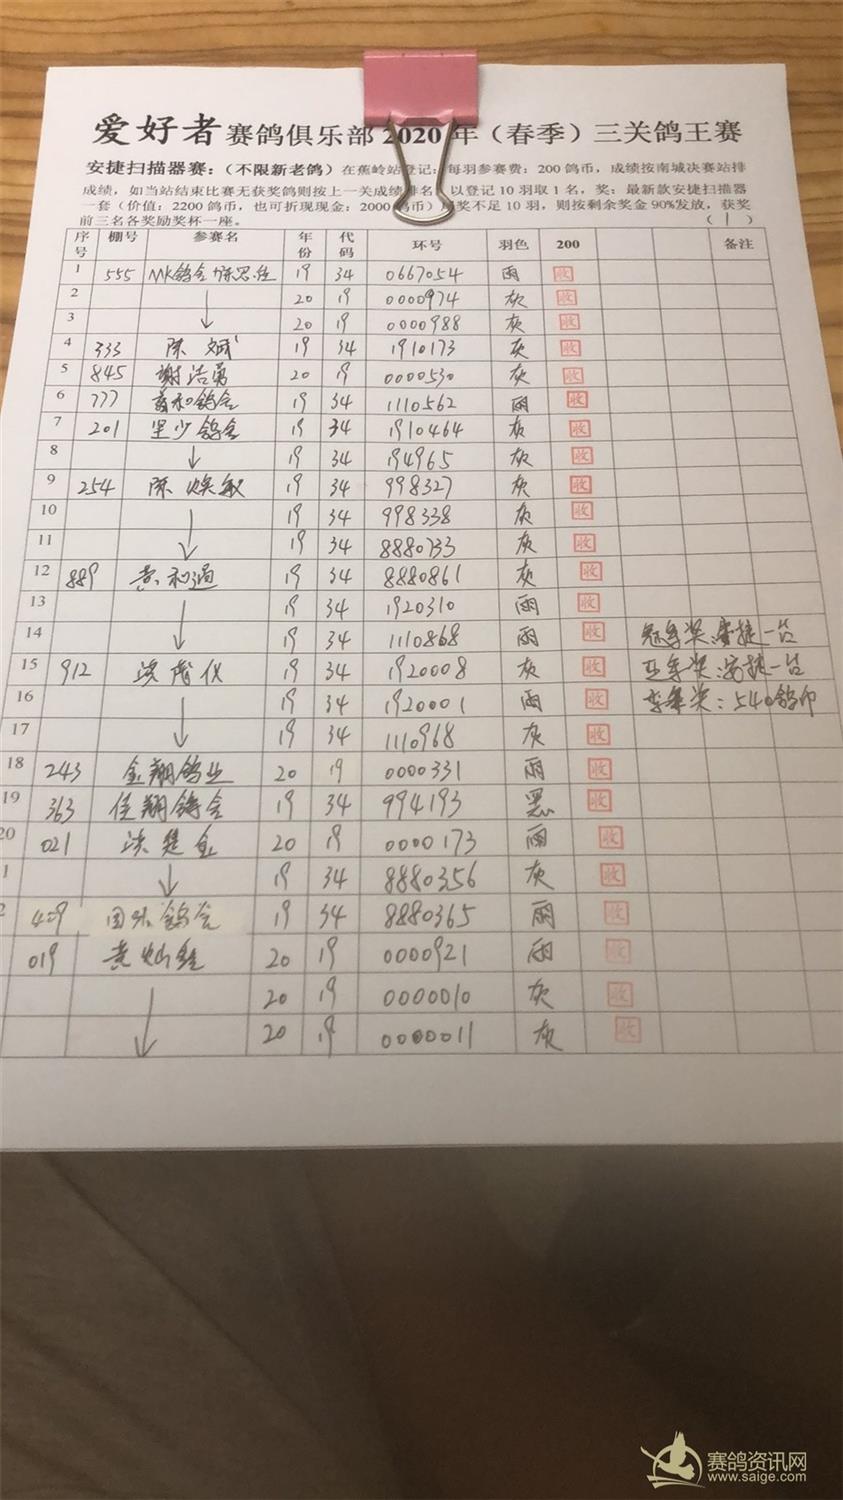 爱好者赛鸽俱乐部2020年（春季）三关鸽王赛
安捷扫描器赛：（不限新老鸽）在蕉岭站登记：每羽参赛费：200鸽币，成绩按南城决赛站排
成绩，如当站结束比赛无获奖鸽则按上一关成绩排名 以登记10羽取1名，奖：最新款安捷扫描器
一套（价值：2200鸽币，也可折现现金：2000鸽币）奖不足10羽，则按剩余奖金90%发放，获奖
前三名各奖励奖杯一座。 （1）
序号 棚号 参赛名 年份 代码 环号 羽色 200 备注
1 555 MK鸽舍 19 34 0667054 雨 收
2 20 19 0000974 灰 收
3 20 19 0000988 灰 收
4 333 陈斌 19 34 1910173 灰 收
5 845 谢洁勇 20 19 0000530 灰 收
6 777 鸽舍 19 34 1110562 雨 收
7 201 鸽舍 19 34 1910464 灰 收
8 19 34 194965 灰 收
9 254 陈焕 19 34 998327 灰 收
10 19 34 998338 灰 收
11 19 34 8880733 灰 收
12 889 黄和通 19 34 8880861 灰 收
13 19 34 1920310 雨 收
14 19 34 1110868 雨 收 冠军奖：安捷一台
15 912 洪茂仪 19 34 1920008 灰 收 亚军奖：安捷一台
16 19 34 1920001 雨 收 季军奖：540鸽币
17 19 34 1110968 灰 收
18 243 金翔鸽业 20 19 0000331 雨 收
19 363 佳翔鸽舍 19 34 994193 黑 收
20 021 洪楚 20 19 0000173 雨 收
1 19 34 8880356 灰 收
2 409 鸽舍 19 34 8880365 雨 收
019 黄灿 20 19 0000921 雨 收
20 19 0000010 灰 收
20 19 0000011 灰 收
赛鸽资讯网
www.saige.com